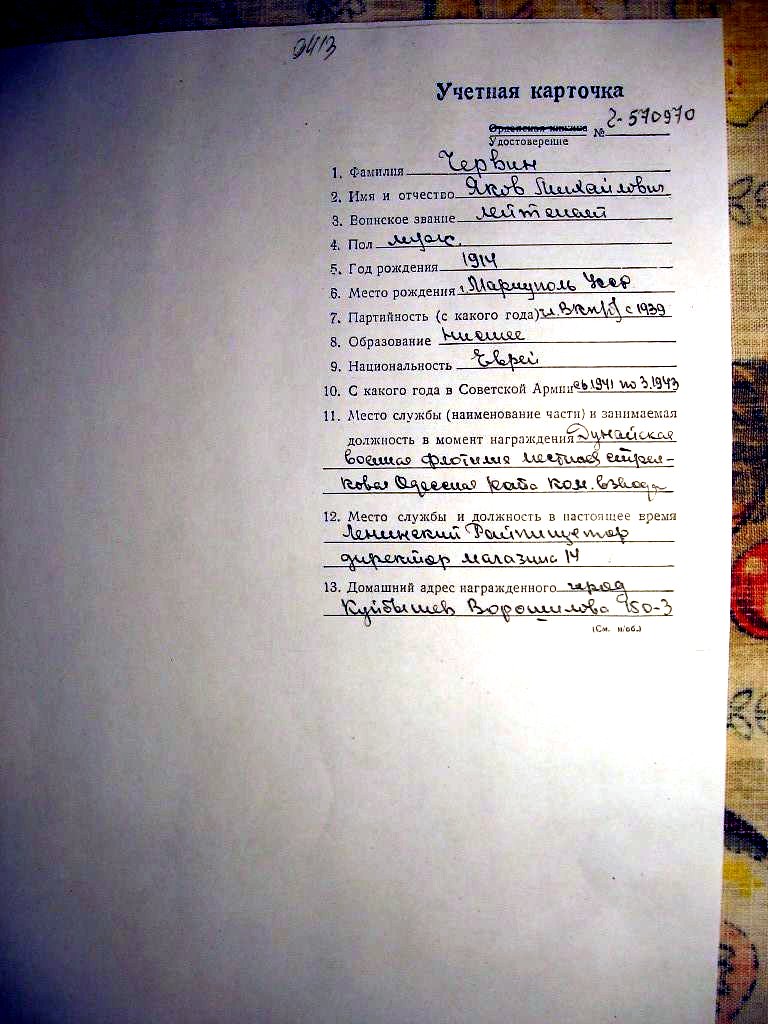 0413
Учетная карточка
Орденская книжка № Г-570970
Удостоверение
1. Фамилия Червин
2. Имя и отчество Яков Михайлович
3. Воинское звание лейтенант
4. Пол муж.
5. Год рождения 1914
6. Место рождения г. Мариуполь Усср
7. Партийность (с какого года) чл. Вкп(б) с 1939
8. Образование низшее
9. Национальность Еврей
10. С какого года в Советской Армии с 6 1941 по 3.1943
11. Место службы (наименование части) и занимаемая
должность в момент награждения Дунайская
военная флотилия местная стрел-
ковая Одесская рота ком. взвода
12. Место службы и должность в настоящее время
Ленинский Райпищеторг
директор магазина 14
13. Домашний адрес награжденного город
Куйбышев Ворошилова 150-3
(См. н/об.)